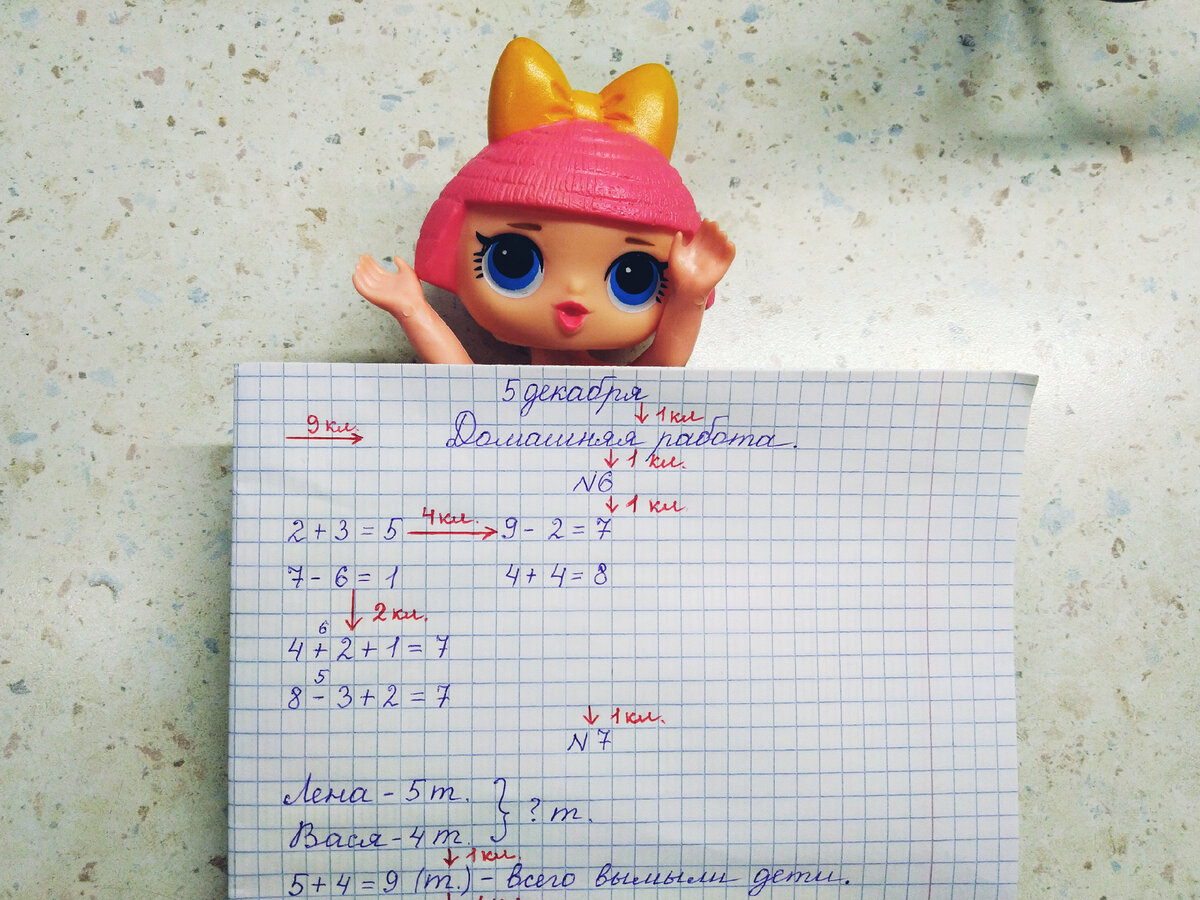 5 декабря
↓ 1 кл
9 кл. Домашняя работа.
↓ 1 кл.
N6
↓ 1 кл.
2 + 3 = 5 4 кл. 9 - 2 = 7
7 - 6 = 1 4 + 4 = 8
↓ 2 кл.
6
4 + 2 + 1 = 7
5
8 - 3 + 2 = 7
↓ 1 кл.
N 7
Лена - 5 т. } ? т.
Вася - 4 т.
↓ 1 кл.
5 + 4 = 9 (т.) - всего вымыли дети.